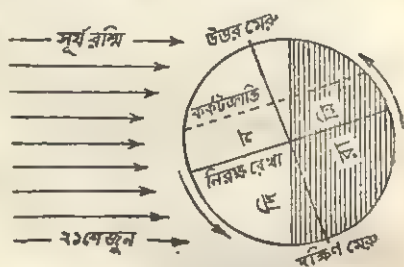 সূর্য রশ্মি
উত্তর মেরু
কর্কটক্রান্তি
দি
ন
নিরক্ষ রেখা
রা
ত্রি
২১শে জুন
দক্ষিণ মেরু